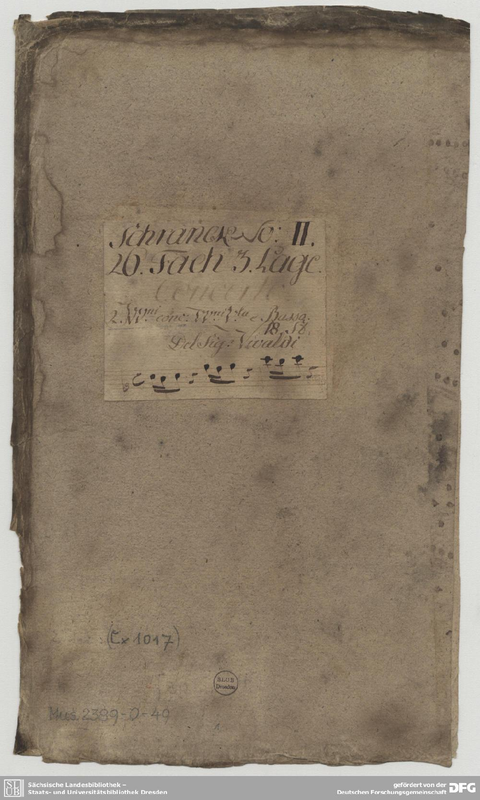 Schranck No: II.
20. Fach 3. Lage.
Concerto
2. VV.ni conc: VV.ni V.la e Basso.
18. St.
Del Sig.r Vivaldi
(Cx 1017)
SLUB
Dresden
Mus. 2389-O-40
SLUB
Sächsische Landesbibliothek –
Staats- und Universitätsbibliothek Dresden
gefördert von der
Deutschen Forschungsgemeinschaft DFG